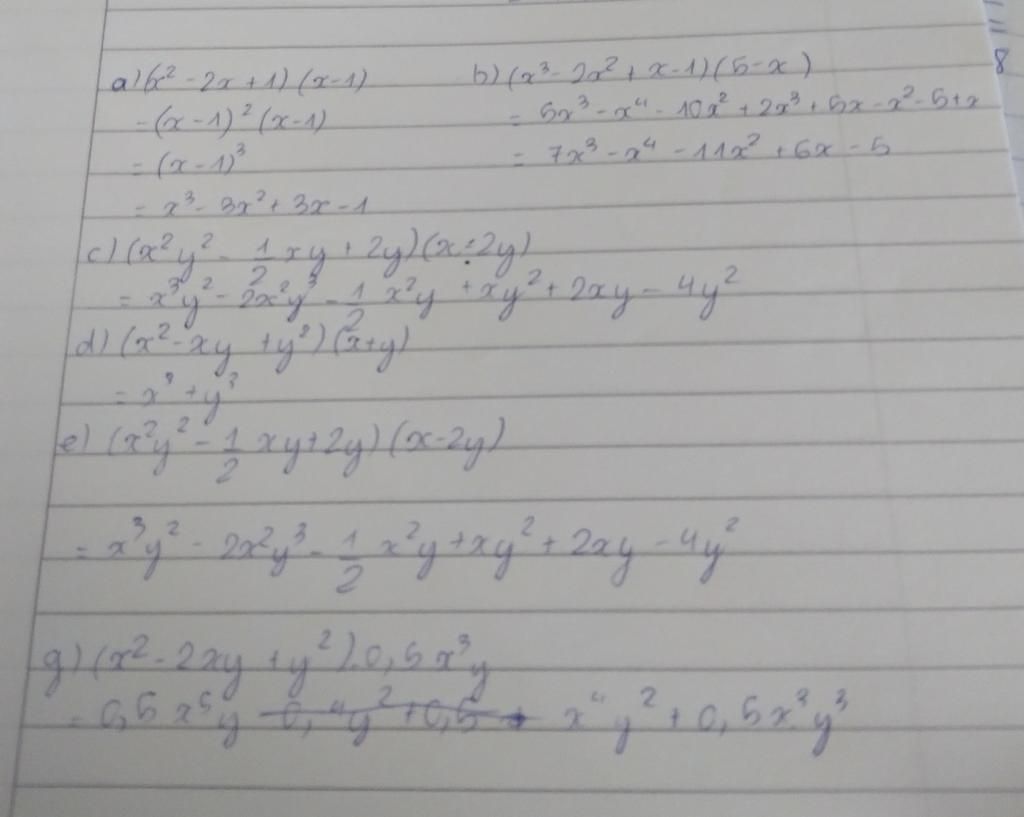 a) (x² - 2x + 1) (x - 1)
= (x - 1)² (x - 1)
= (x - 1)³
= x³ - 3x² + 3x - 1
b) (x³ - 2x² + x - 1) (5 - x)
= 5x³ - x⁴ - 10x² + 2x³ + 5x - x² - 5 + x
= 7x³ - x⁴ - 11x² + 6x - 5
c) (x²y² - 1/2 xy + 2y) (x - 2y)
= x³y² - 2x²y³ - 1/2 x²y + xy² + 2xy - 4y²
d) (x² - xy + y²) (x + y)
= x³ + y³
e) (x²y² - 1/2 xy + 2y) (x - 2y)
= x³y² - 2x²y³ - 1/2 x²y + xy² + 2xy - 4y²
g) (x² - 2xy + y²).0,5x³y
= 0,5x⁵y - x⁴y² + 0,5x³y³
8